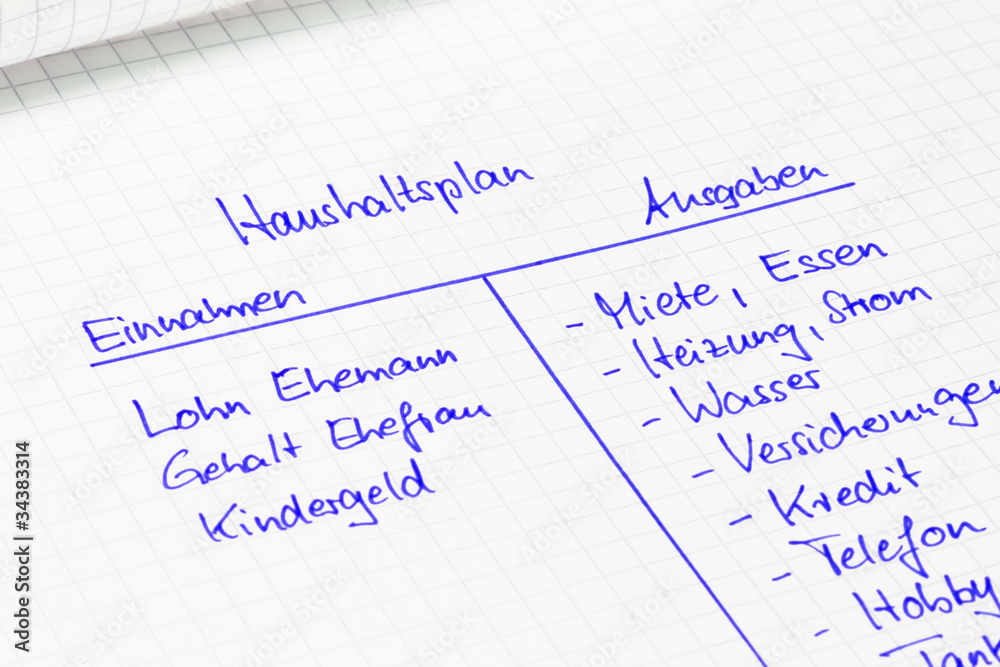 Haushaltsplan
Einnahmen
Lohn Ehemann
Gehalt Ehefrau
Kindergeld
Ausgaben
- Miete, Essen
- Heizung, Strom
- Wasser
- Versicherungen
- Kredit
- Telefon
- Hobby
Tank
Adobe Stock | #34383314